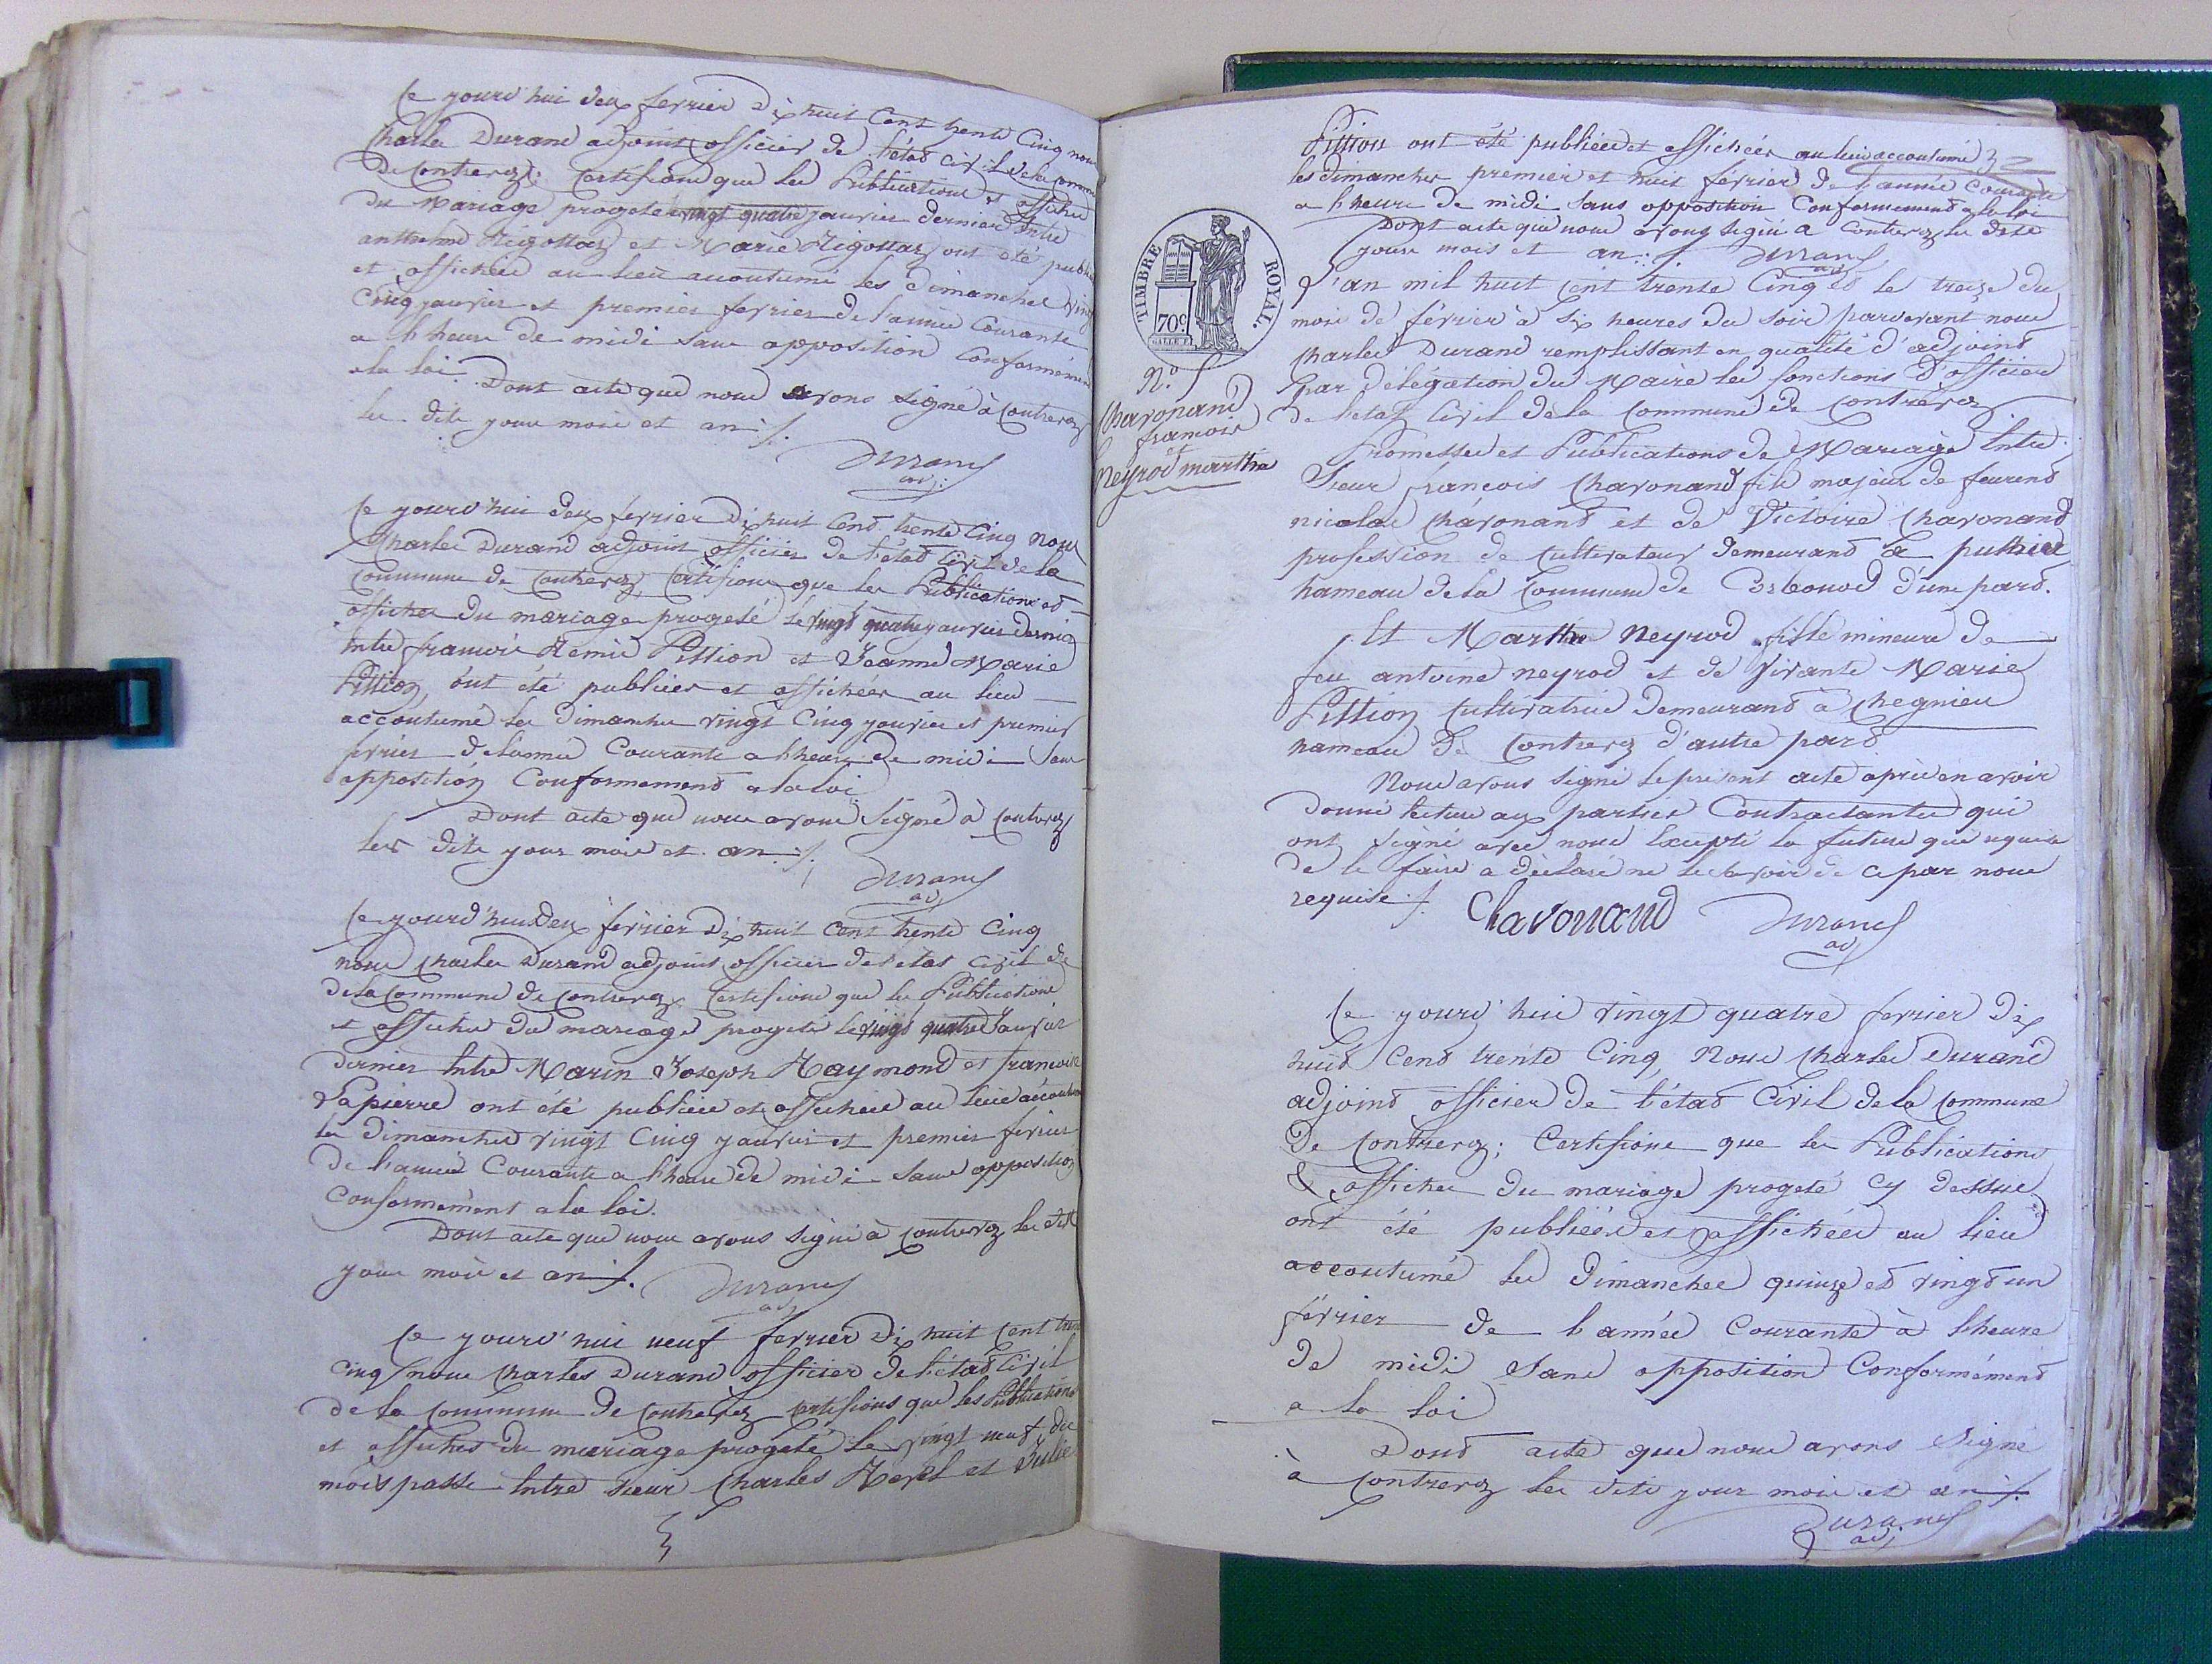 Ce yourd'hui deux fevrier dix huit Cent trente Cinq nous
Charles Durand adjoint officier de l'état civil de la commune
De Contrevoz; Certifions que les Publications et affiches
du Mariage progeté le vingt quatre janvier dernier Entre
anthelme Rigottaz et Marie Rigottaz ont été publiées
et affichées au lieu accoutumé les dimanches vingt
Cinq janvier et premier fevrier de l'année Courante
a l'heure de midi sans opposition Conformément
a la loi. Dont acte que nous avons signé à Contrevoz
les dits jour mois et an ./.
Durand
adj.
Ce yourd'hui deux fevrier dix huit Cent trente Cinq Nous
Charles Durand adjoint officier de l'état Civil de la
Commune de Contrevoz, Certifions que les Publications et
affiches du mariage progeté le vingt quatre janvier dernier
Entre francois Remie Pittion et Jeanne Marie
Pittion, ont été publiées et affichées au lieu
accoutumé les dimanches vingt Cinq yanvier et premier
fevrier de l'année Courante a l'heure de midi Sans
opposition Conformement a la loi
Dont acte que nous avons Signé à Contrevoz
les dits jour mois et an ./.
Durand
adj
Ce yourd'hui Deux fevrier Dix huit Cent trente Cinq
nous Charles Durand adjoint officier de l'état civil de
de la Commune de Contrevoz, Certifions que les Publications
et affiches du mariage progeté le vingt quatre Janvier
dernier Entre Marin Joseph Raymond et francoise
Lapierre ont été publiées et affichées au lieu accoutumé
les Dimanches vingt Cinq yanvier et premier fevrier
de l'année Courante a l'heure de midi Sans opposition
Conformément a la loi.
Dont acte que nous avons signé à Contrevoz les dits
jour mois et an ./. Durand
adj
Ce yourd'hui neuf fevrier dix huit Cent trente
Cinq nous Charles Durand officier de l'état Civil
de la Commune de Contrevoz Certifions que les Publications
et affiches du mariage progeté le vingt neuf du
mois passé Entre sieur Charles Revel et Julie
Pittion ont été publiées et affichées au lieu accoutumé
les dimanches premier et huit février de l'année Courante
a l'heure de midi Sans opposition Conformement a la loi
Dont acte que nous avons signé a Contrevoz les dits
jour mois et an ./. Durand
adj
TIMBRE ROYAL.
70c
N.°
Chavonand
francois
et
Neyrod marthe
L'an mil huit cent trente Cinq et le treize du
mois de février à six heures du soir pardevant nous
Charles Durand remplissant en qualité d'adjoint
par délégation du Maire les fonctions d'officier
de l'état Civil de la Commune de Contrevoz
Promesses et Publications de Mariage Entre
Sieur françois Chavonand fils majeur de
nicolas Chavonand et de Victoire Chavonand
profession de Cultivateur demeurant à
hameau de la Commune de d'une part.
Et Marthe Neyrod fille mineure de
feu antoine neyrod et de vivante Marie
Pittion Cultivatrice demeurant à Chegnieu
hameau de Contrevoz d'autre part.
Nous avons signé le présent acte après en avoir
Donné lecture aux parties Contractantes qui
ont signé avec nous Excepté la future que
de le faire a déclaré ne le savoir de ce par nous
requise ./. Chavonand Durand
adj
Ce yourd'hui vingt quatre fevrier dix
huit Cent trente Cinq, Nous Charles Durand
adjoint officier de l'état Civil de la Commune
De Contrevoz; Certifions que les Publications
& affiches du mariage progeté cy dessus
ont été publiées et affichées au lieu
accoutumé les Dimanches quinze et vingt un
février de l'année Courante à l'heure
de midi Sans opposition Conformément
a la loi
Dont acte que nous avons Signé
à Contrevoz les dits jour mois et an ./.
Durand
adj.